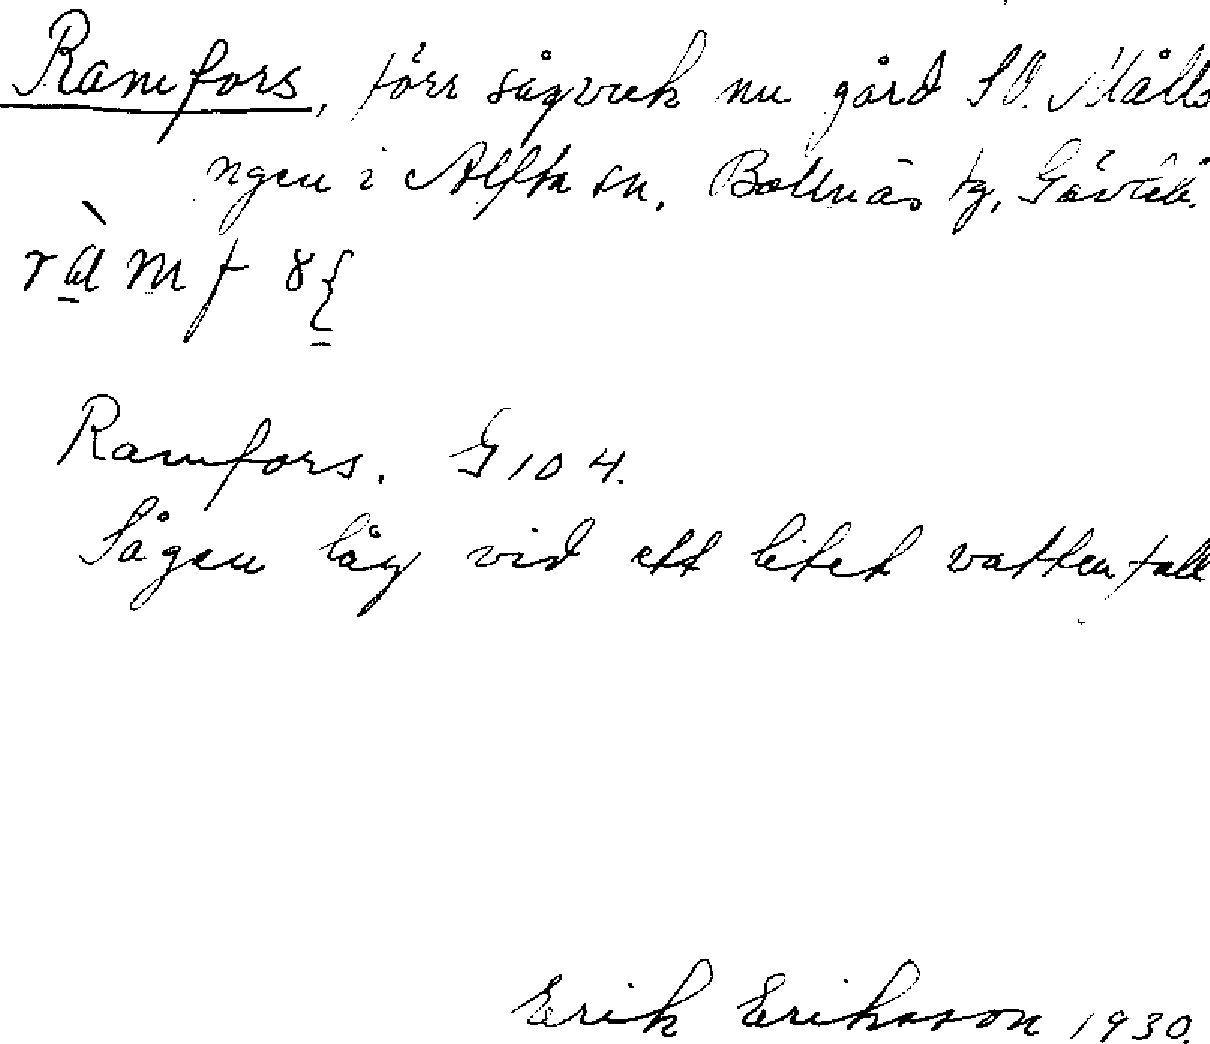 Ramfors, förr sågverk nu gård SO. Målls
ngen i Alfta sn, Bollnäs tg, Gävleb.
Ramfors. G 104.
Sågen låg vid ett litet vattenfall
Erik Eriksson 1930.